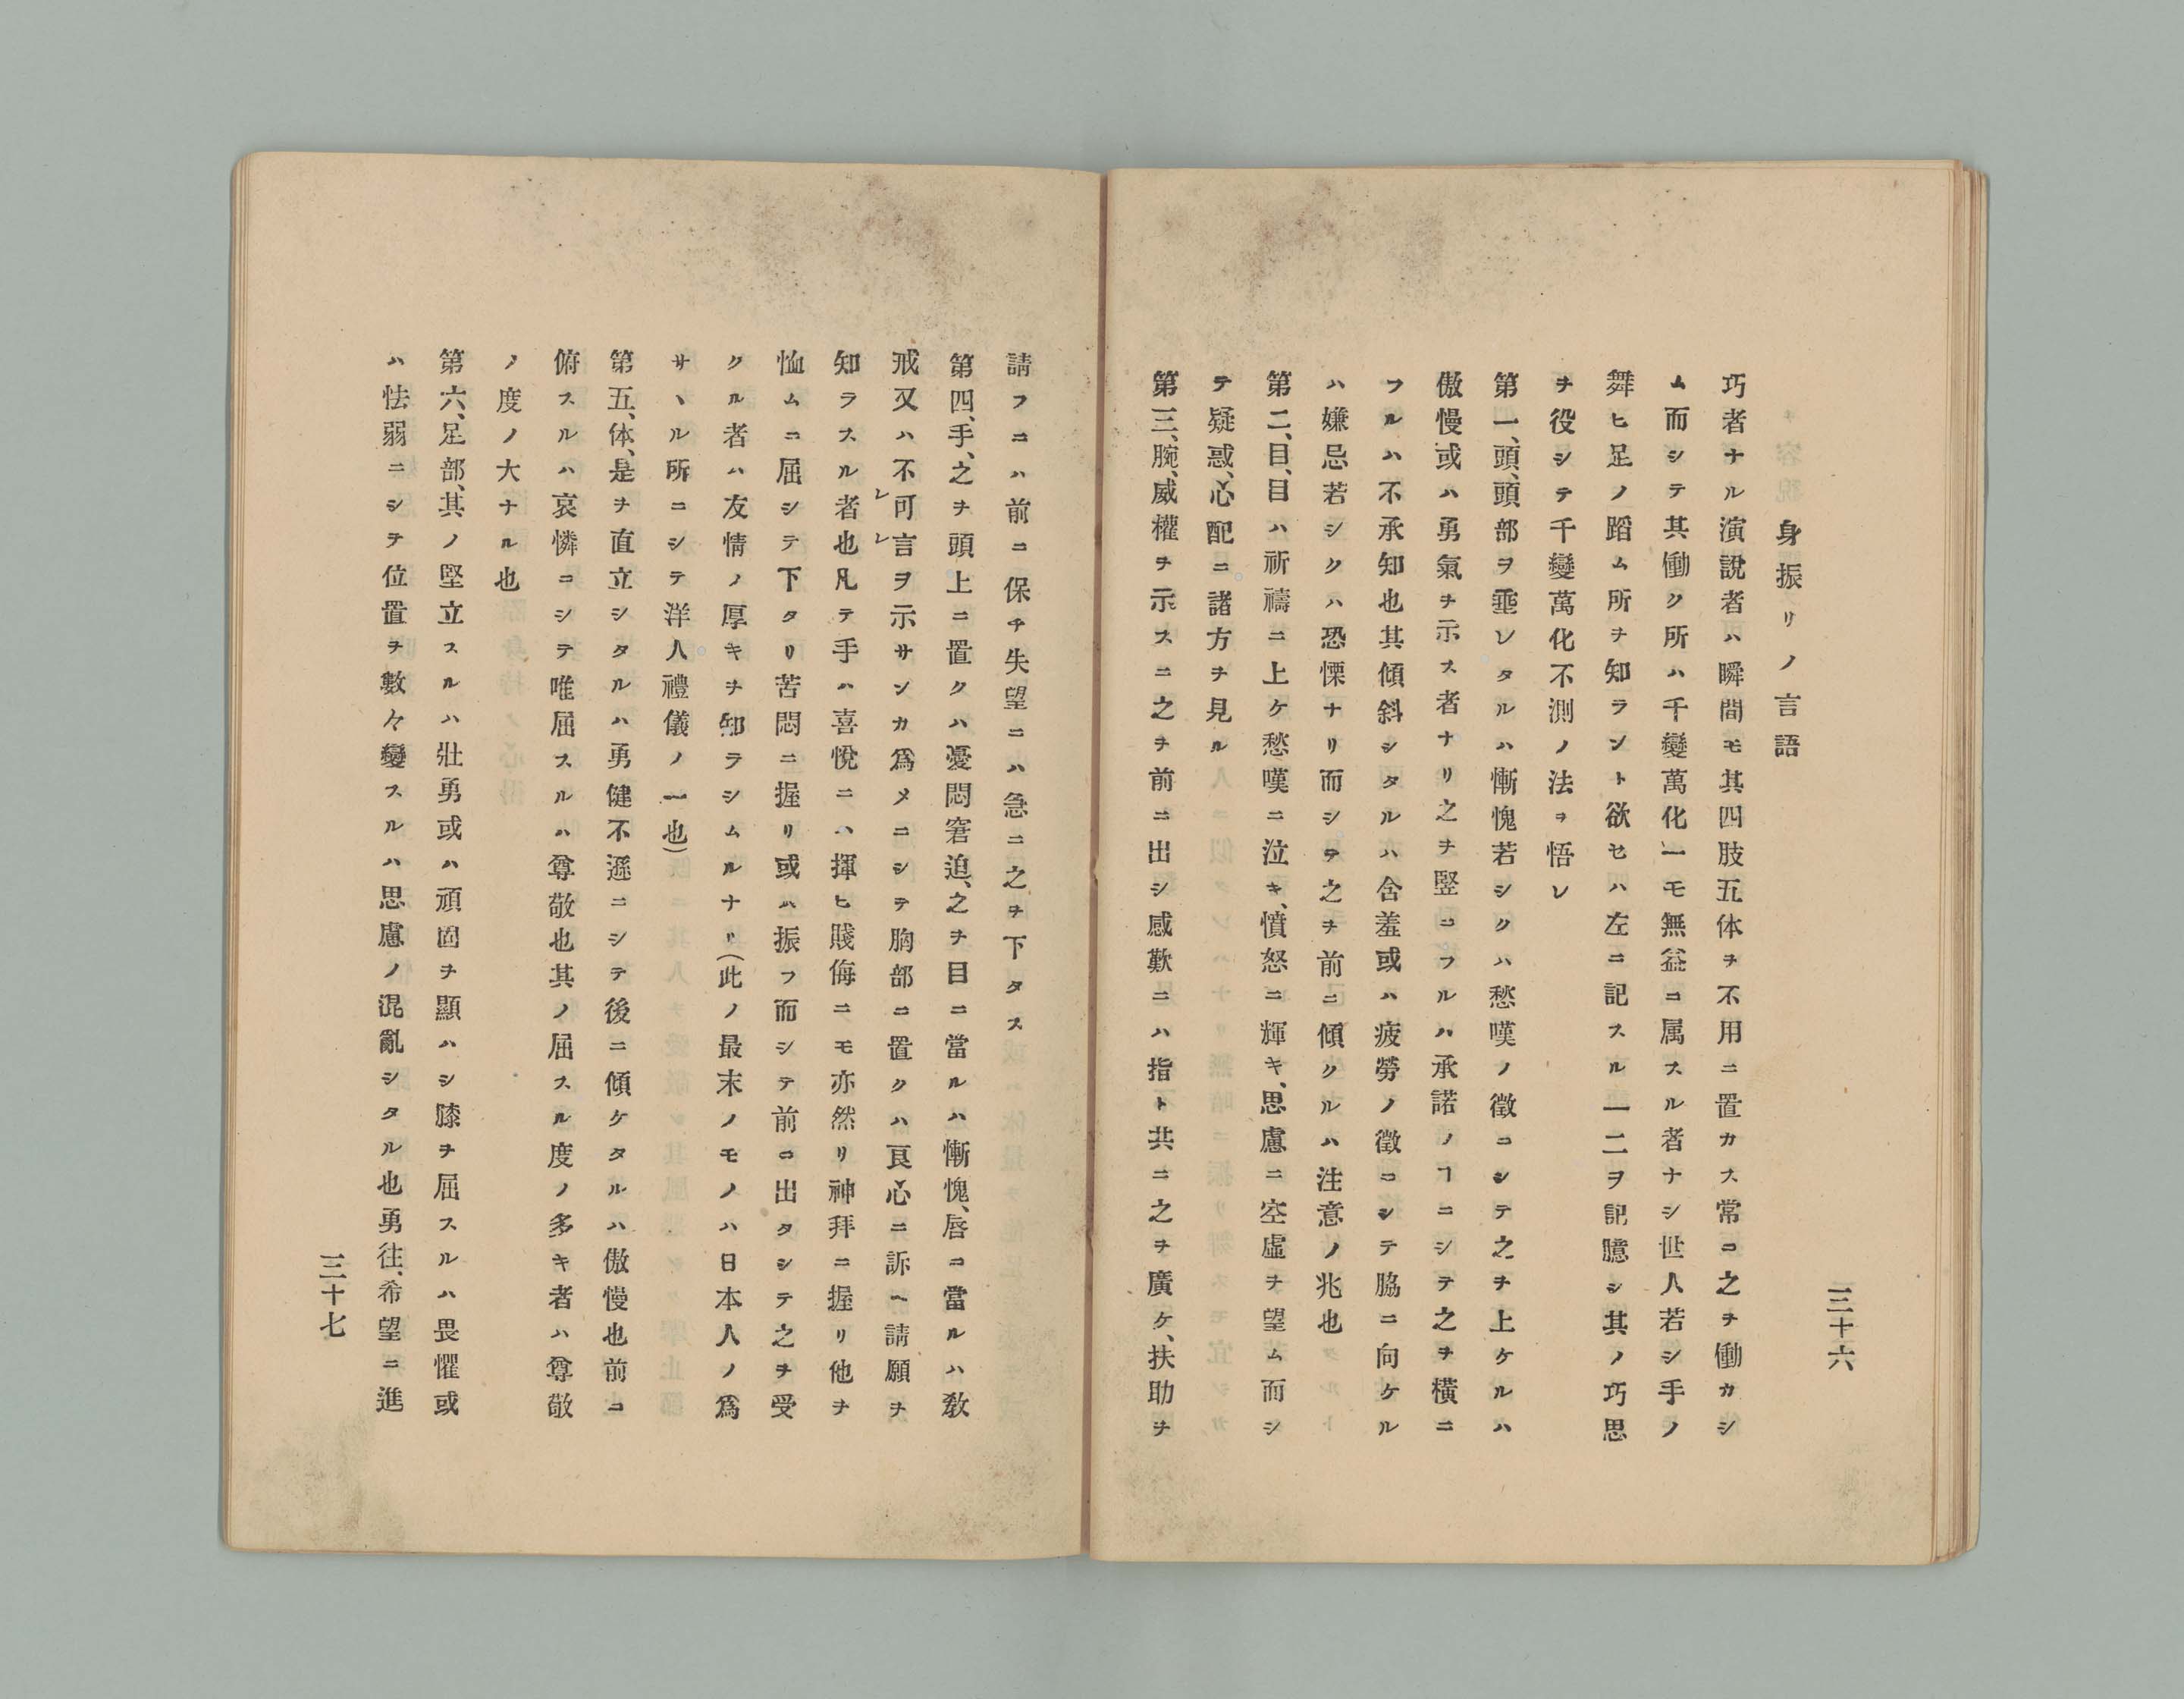 三十六
身振リノ言語
巧者ナル演説者ハ瞬間モ其四肢五体ヲ不用ニ置カス常ニ之ヲ働カシ
ム而シテ其働ク所ハ千變萬化一モ無益ニ属スル者ナシ世人若シ手ノ
舞ヒ足ノ蹈ム所ヲ知ラント欲セハ左ニ記スル一二ヲ記臆シ其ノ巧思
ヲ役シテ千變萬化不測ノ法ヲ悟レ
第一、頭、頭部ヲ垂レタルハ慚愧若シクハ愁嘆ノ徵ニシテ之ヲ上ケルハ
傲慢或ハ勇氣ヲ示ス者ナリ之ヲ竪ニフルハ承諾ノヿニシテ之ヲ橫ニ
フルハ不承知也其傾斜シタルハ含羞或ハ疲勞ノ徵ニシテ脇ニ向ケル
ハ嫌忌若シクハ恐慄ナリ而シテ之ヲ前ニ傾クルハ注意ノ兆也
第二、目、目ハ祈禱ニ上ケ愁嘆ニ泣キ、憤怒ニ輝キ、思慮ニ空虛ヲ望ム而シ
テ疑惑、心配ニ諸方ヲ見ル
第三、腕、威權ヲ示スニ之ヲ前ニ出シ感歎ニハ指ト共ニ之ヲ廣ケ、扶助ヲ
請フニハ前ニ保チ失望ニハ急ニ之ヲ下タス
第四、手、之ヲ頭上ニ置クハ憂悶窘迫、之ヲ目ニ當ルハ慚愧、唇ニ當ルハ敎
戒又ハ不レ可レ言ヲ示サンカ爲メニシテ胸部ニ置クハ良心ニ訴ヘ請願ヲ
知ラスル者也凡テ手ハ喜悅ニハ揮ヒ賤侮ニモ亦然リ神拜ニ握リ他ヲ
恤ムニ屈シテ下タリ苦悶ニ握リ或ハ振フ而シテ前ニ出タシテ之ヲ受
クル者ハ友情ノ厚キヲ知ラシムルナリ(此ノ最末ノモノハ日本人ノ爲
サヽル所ニシテ洋人禮儀ノ一也)
第五、体、是ヲ直立シタルハ勇健不遜ニシテ後ニ傾ケタルハ傲慢也前ニ
俯スルハ哀憐ニシテ唯屈スルハ尊敬也其ノ屈スル度ノ多キ者ハ尊敬
ノ度ノ大ナル也
第六、足部、其ノ堅立スルハ壯勇或ハ頑固ヲ顯ハシ膝ヲ屈スルハ畏懼或
ハ怯弱ニシテ位置ヲ數々變スルハ思慮ノ混亂シタル也勇往、希望ニ進
三十七